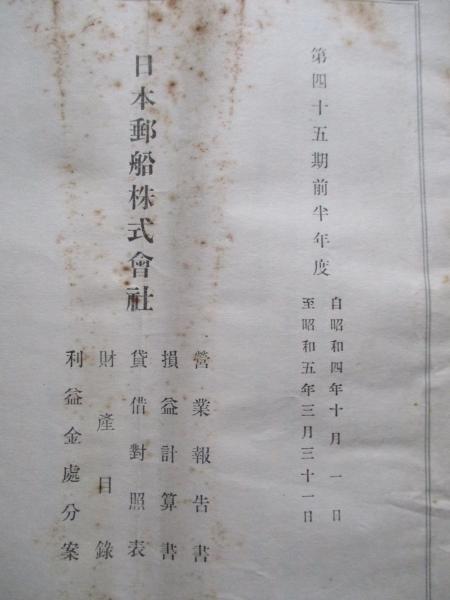 第四十五期前半年度
自昭和四年十月一日
至昭和五年三月三十一日
日本郵船株式會社
營業報告書
損益計算書
貸借對照表
財產目錄
利益金處分案